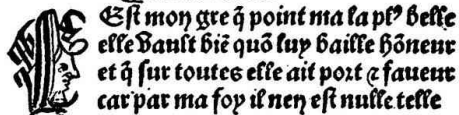 Est mon gre q̃ point ma la pl⁹ belle
elle vault biẽ quõ luy baille hõneur
et q̃ sur toutes elle ait port ⁊ faueur
car par ma foy il nen est nulle telle